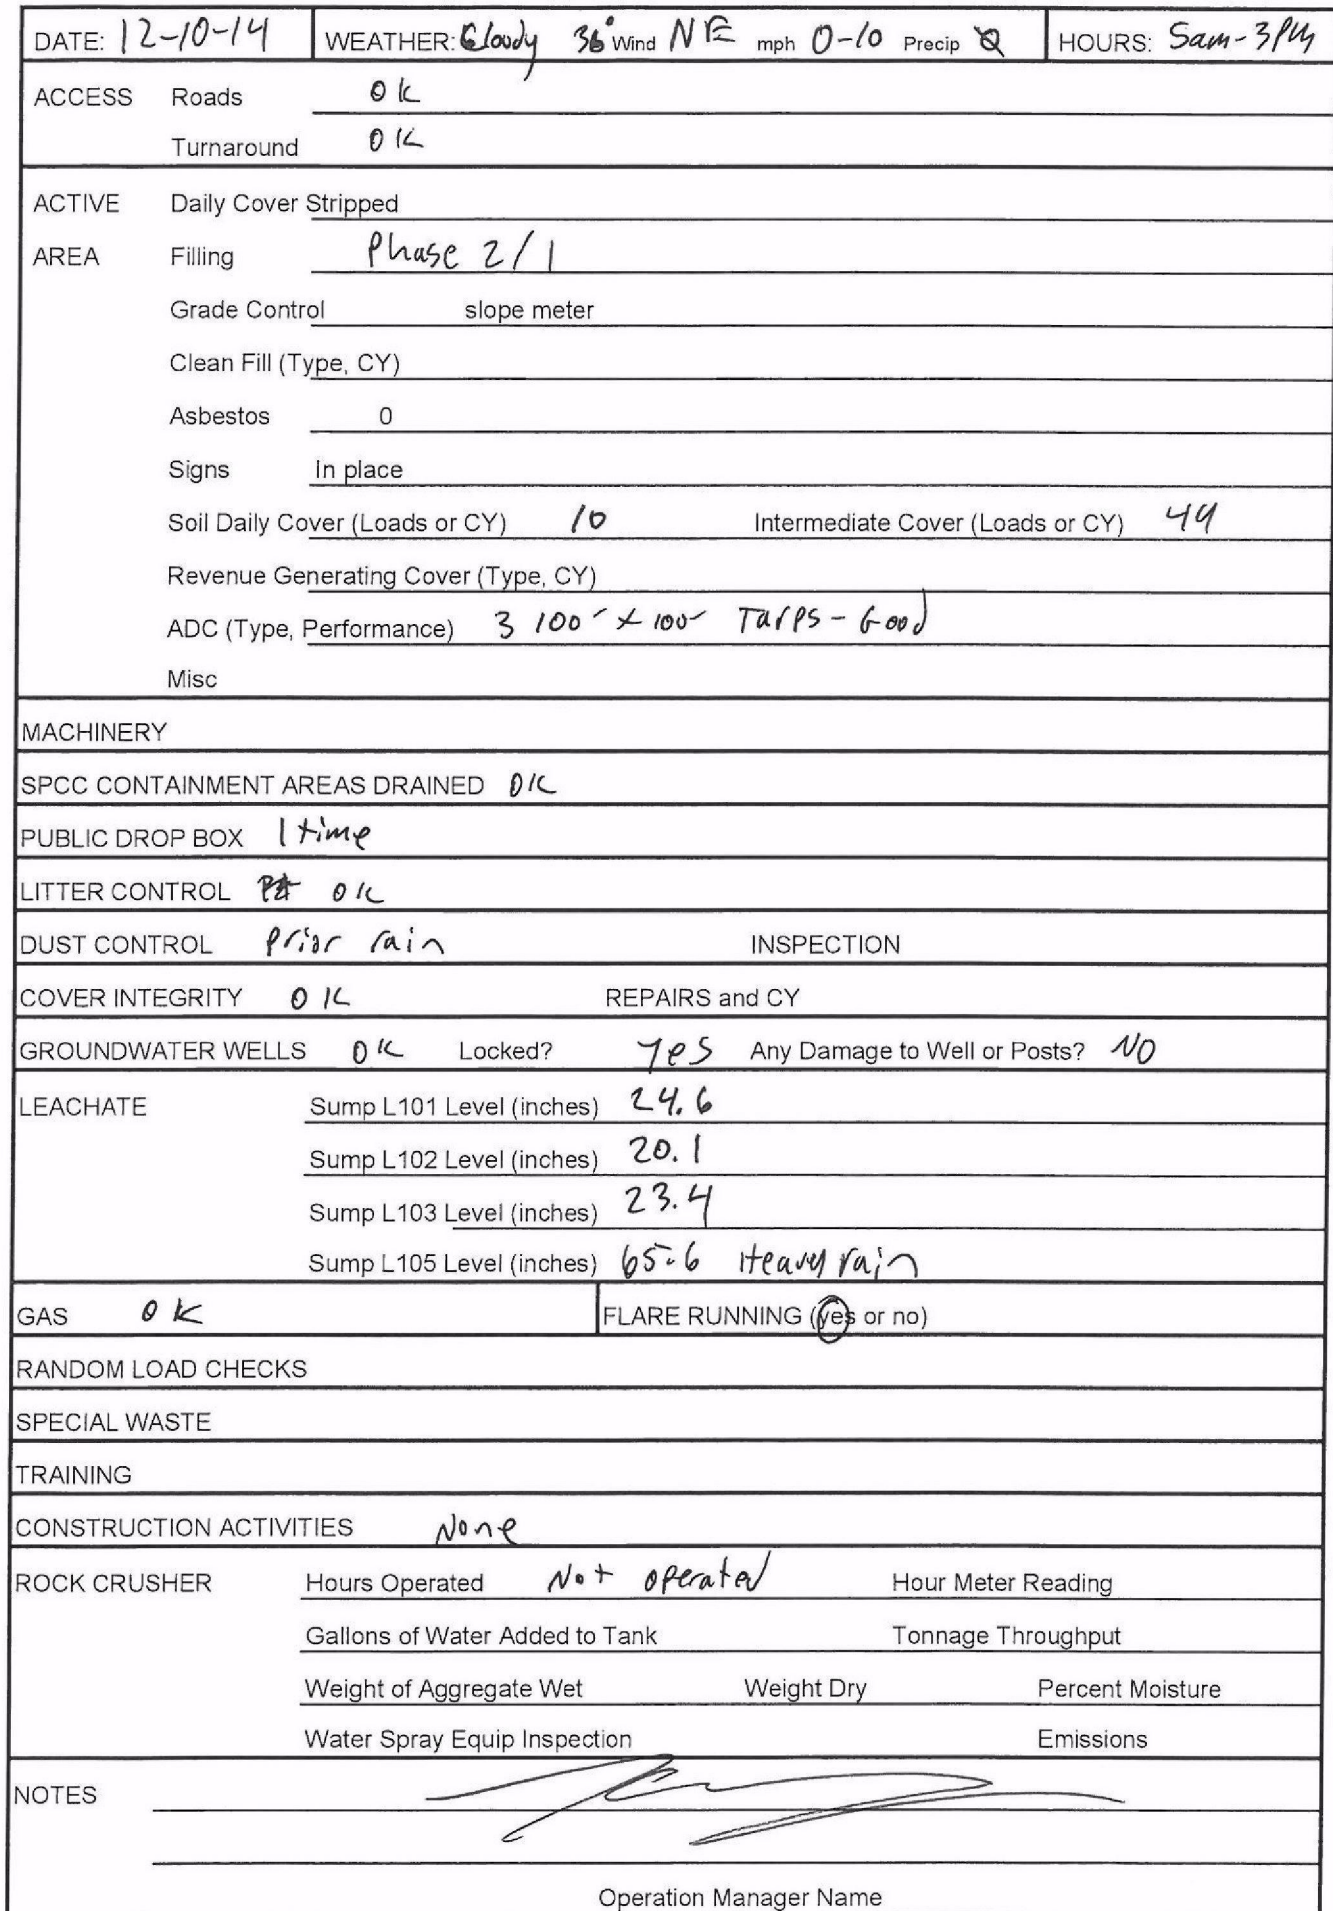 DATE: 12-10-14 WEATHER: Cloudy 36° Wind NE mph 0-10 Precip 0 HOURS: 5am-3PM
ACCESS Roads OK
Turnaround OK
ACTIVE Daily Cover Stripped
AREA Filling Phase 2/1
Grade Control slope meter
Clean Fill (Type, CY)
Asbestos 0
Signs In place
Soil Daily Cover (Loads or CY) 10 Intermediate Cover (Loads or CY) 44
Revenue Generating Cover (Type, CY)
ADC (Type, Performance) 3 100' x 100' Tarps - Good
Misc
MACHINERY
SPCC CONTAINMENT AREAS DRAINED OK
PUBLIC DROP BOX 1 time
LITTER CONTROL OK
DUST CONTROL Prior rain INSPECTION
COVER INTEGRITY OK REPAIRS and CY
GROUNDWATER WELLS OK Locked? yes Any Damage to Well or Posts? NO
LEACHATE Sump L101 Level (inches) 24.6
Sump L102 Level (inches) 20.1
Sump L103 Level (inches) 23.4
Sump L105 Level (inches) 65.6 Heavy rain
GAS OK FLARE RUNNING (yes or no)
RANDOM LOAD CHECKS
SPECIAL WASTE
TRAINING
CONSTRUCTION ACTIVITIES None
ROCK CRUSHER Hours Operated Not operated Hour Meter Reading
Gallons of Water Added to Tank Tonnage Throughput
Weight of Aggregate Wet Weight Dry Percent Moisture
Water Spray Equip Inspection Emissions
NOTES
Operation Manager Name